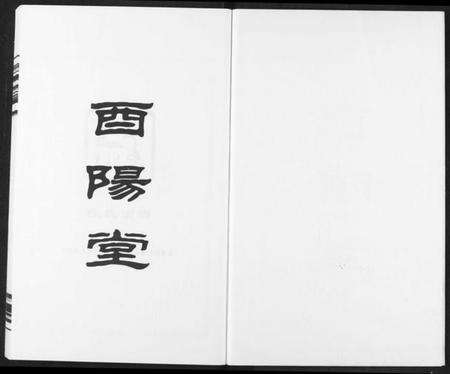 酉陽堂